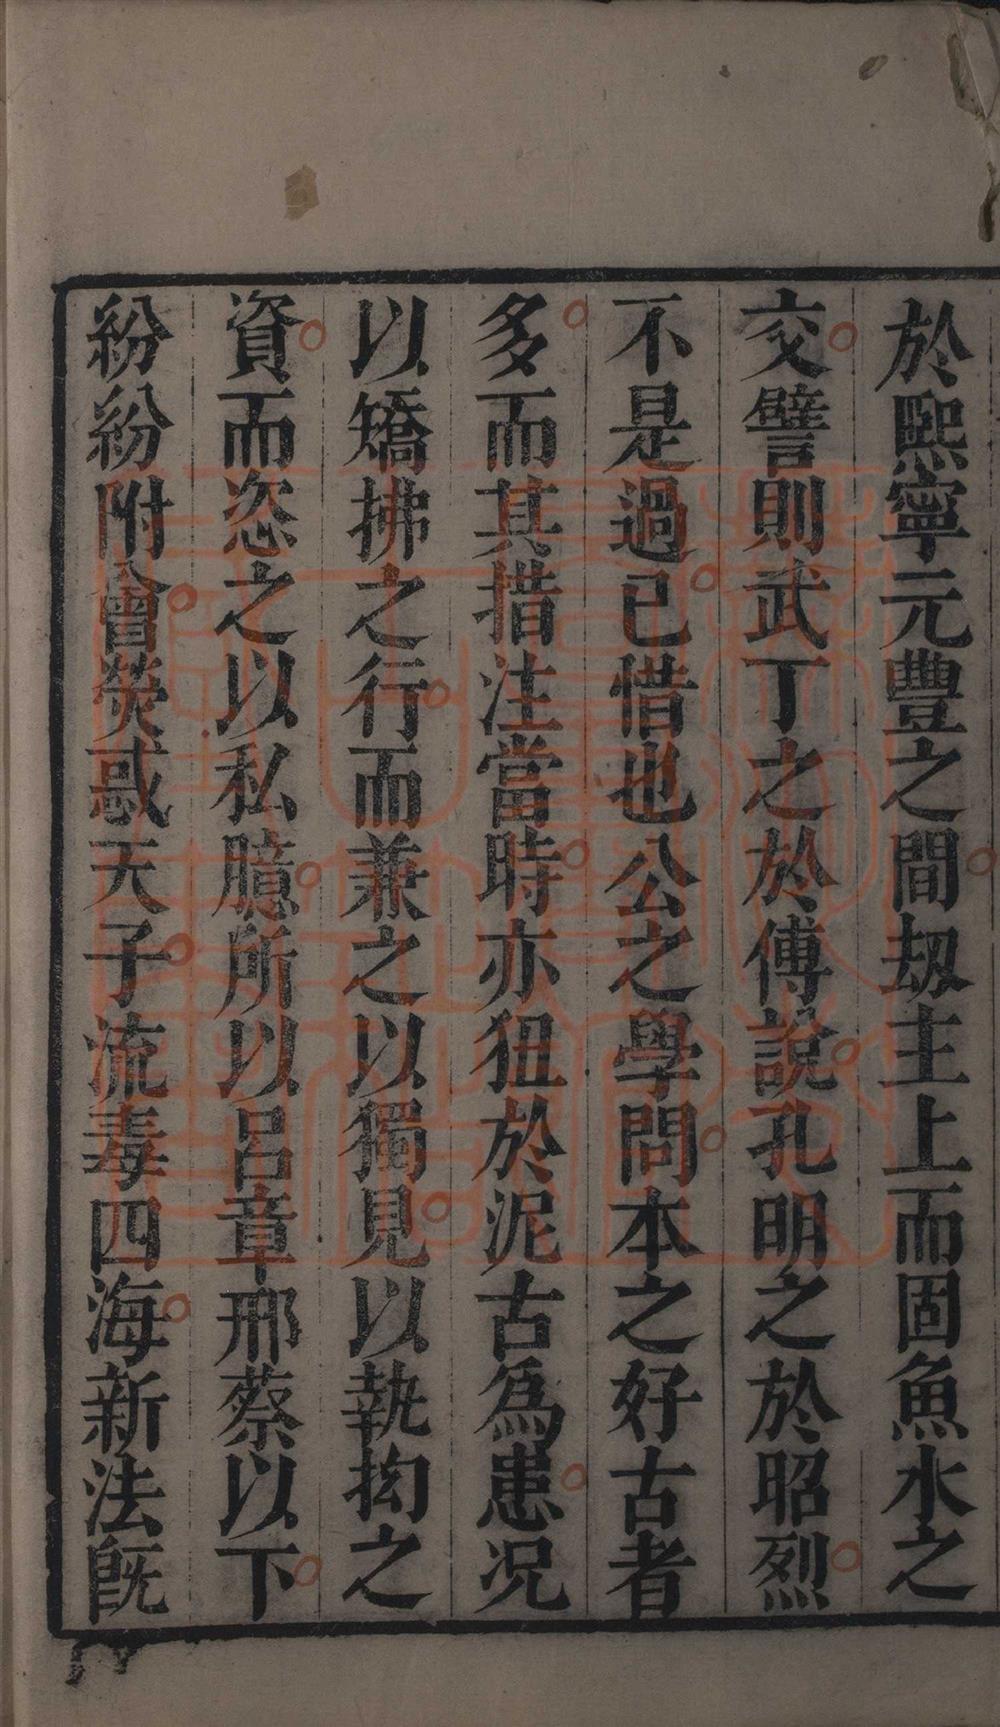 於熙寧元豐之間刼主上而固魚水之
交譬則武丁之於傅說孔明之於昭烈
不是過已惜也公之學問本之好古者
多而其措注當時亦狃於泥古爲患况
以矯拂之行而兼之以獨見以執拘之
資而恣之以私臆所以呂章邢蔡以下
紛紛附會熒惑天子流毒四海新法旣